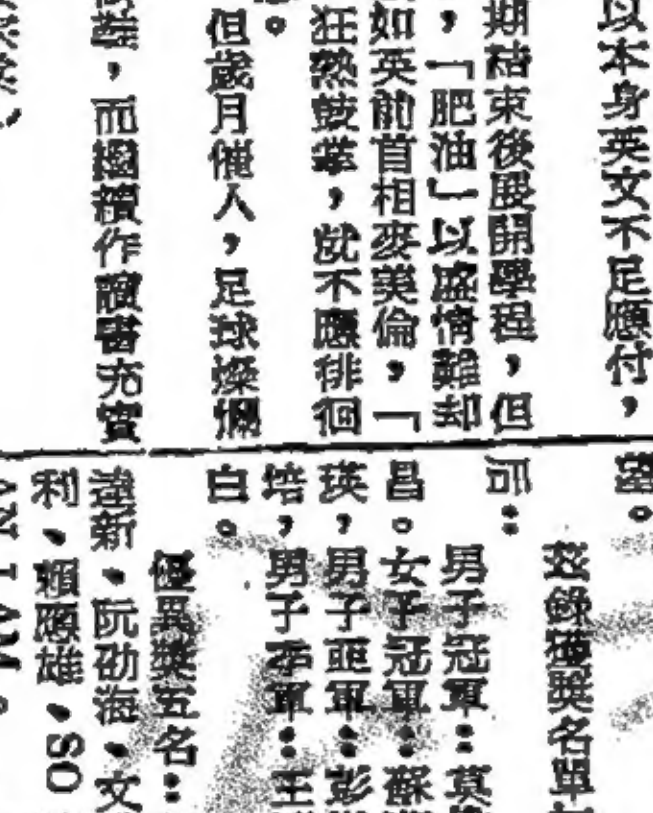 以本身英文不足應付，
期結束後展開學程，但
，「肥油」以盛情難却
如英前首相麥美倫，「
狂熱鼓掌，就不應徘徊
。
但歲月催人，足球燦爛
裝，而繼續作讀書充實
茲錄獲獎名單
：
男子冠軍：莫
昌。女子冠軍：蘇
瑛，男子亞軍：彭
培，男子季軍：王
白。
優異獎五名：
達新、阮劭海、文
利、賴應雄、SO
AN LAM